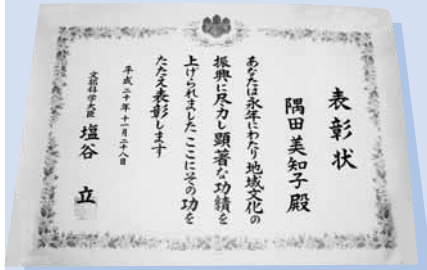 表彰状
隅田美知子殿
あなたは永年にわたり地域文化の
振興に尽力し顕著な功績を
上げられましたここにその功を
たたえ表彰します
平成二十年十一月二十八日
文部科学大臣 塩谷 立